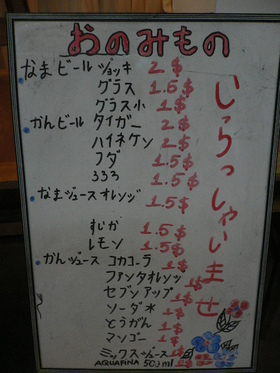 おのみもの
なまビール ジョッキ 2$
グラス 1.5$
グラス小 1$
かんビール タイガー 2$
ハイネケン 2$
フダ 1.5$
333 1.5$
なまジュース オレンジ 1.5$
すいか 1.5$
レモン 1.5$
かんジュース コカコーラ 1$
ファンタオレンジ 1$
セブンアップ 1$
ソーダ水 1$
とうがん 1$
マンゴー 1$
ミックスジュース 1$
AQUAFINA 500ml 1$
いらっしゃいませ